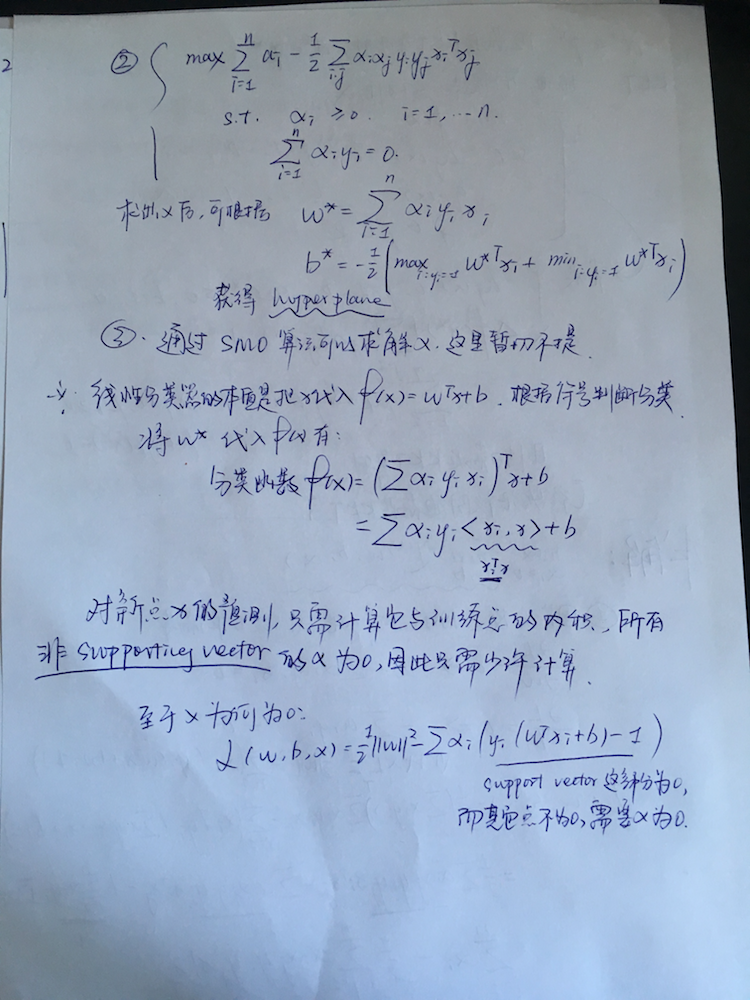 2
② max Σ_{i=1}^{n} α_i - 1/2 Σ_{i,j} α_i α_j y_i y_j x_i^T x_j
s.t. α_i ≥ 0. i=1, … n.
Σ_{i=1}^{n} α_i y_i = 0.
求出α后,可根据 w* = Σ_{i=1}^{n} α_i y_i x_i
b* = -1/2 ( max_{i:y_i=-1} w*^T x_i + min_{i:y_i=1} w*^T x_i )
获得 hyperplane
③. 通过 SMO 算法可以求解α. 这里暂切不提.
线性分类器的本质是把x代入 f(x) = w^T x + b. 根据符号判断分类.
将 w* 代入 f(x) 有:
分类函数 f(x) = (Σ α_i y_i x_i)^T x + b
= Σ α_i y_i <x_i, x> + b
x_i^T x
对新点x的预测,只需计算它与训练点的内积,所有
非 supporting vector 的α为0,因此只需少许计算.
至于α为何为0:
L(w, b, α) = 1/2 ||w||² - Σ α_i (y_i (w^T x_i + b) - 1)
support vector 这部分为0,
而其它点不为0,需要α为0.